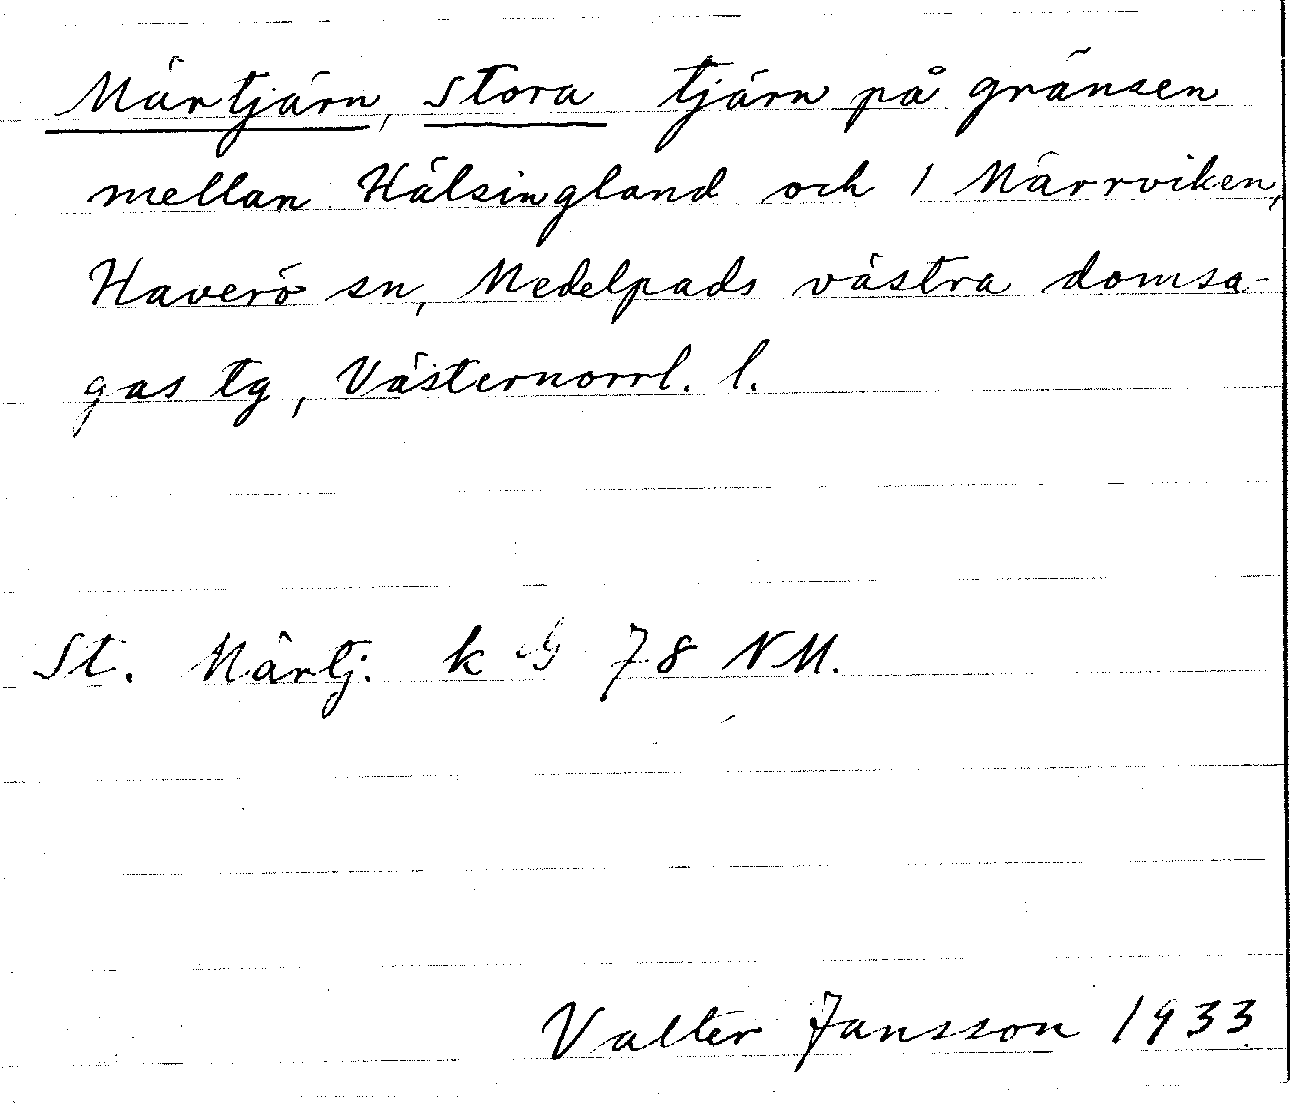 Märtjärn, Stora tjärn på gränsen
mellan Hälsingland och 1 Märrviken,
Haverö sn, Medelpads västra domsa-
gas tg, Västernorrl. l.
St. Märtj. k G 78 NM.
Valter Jansson 1933